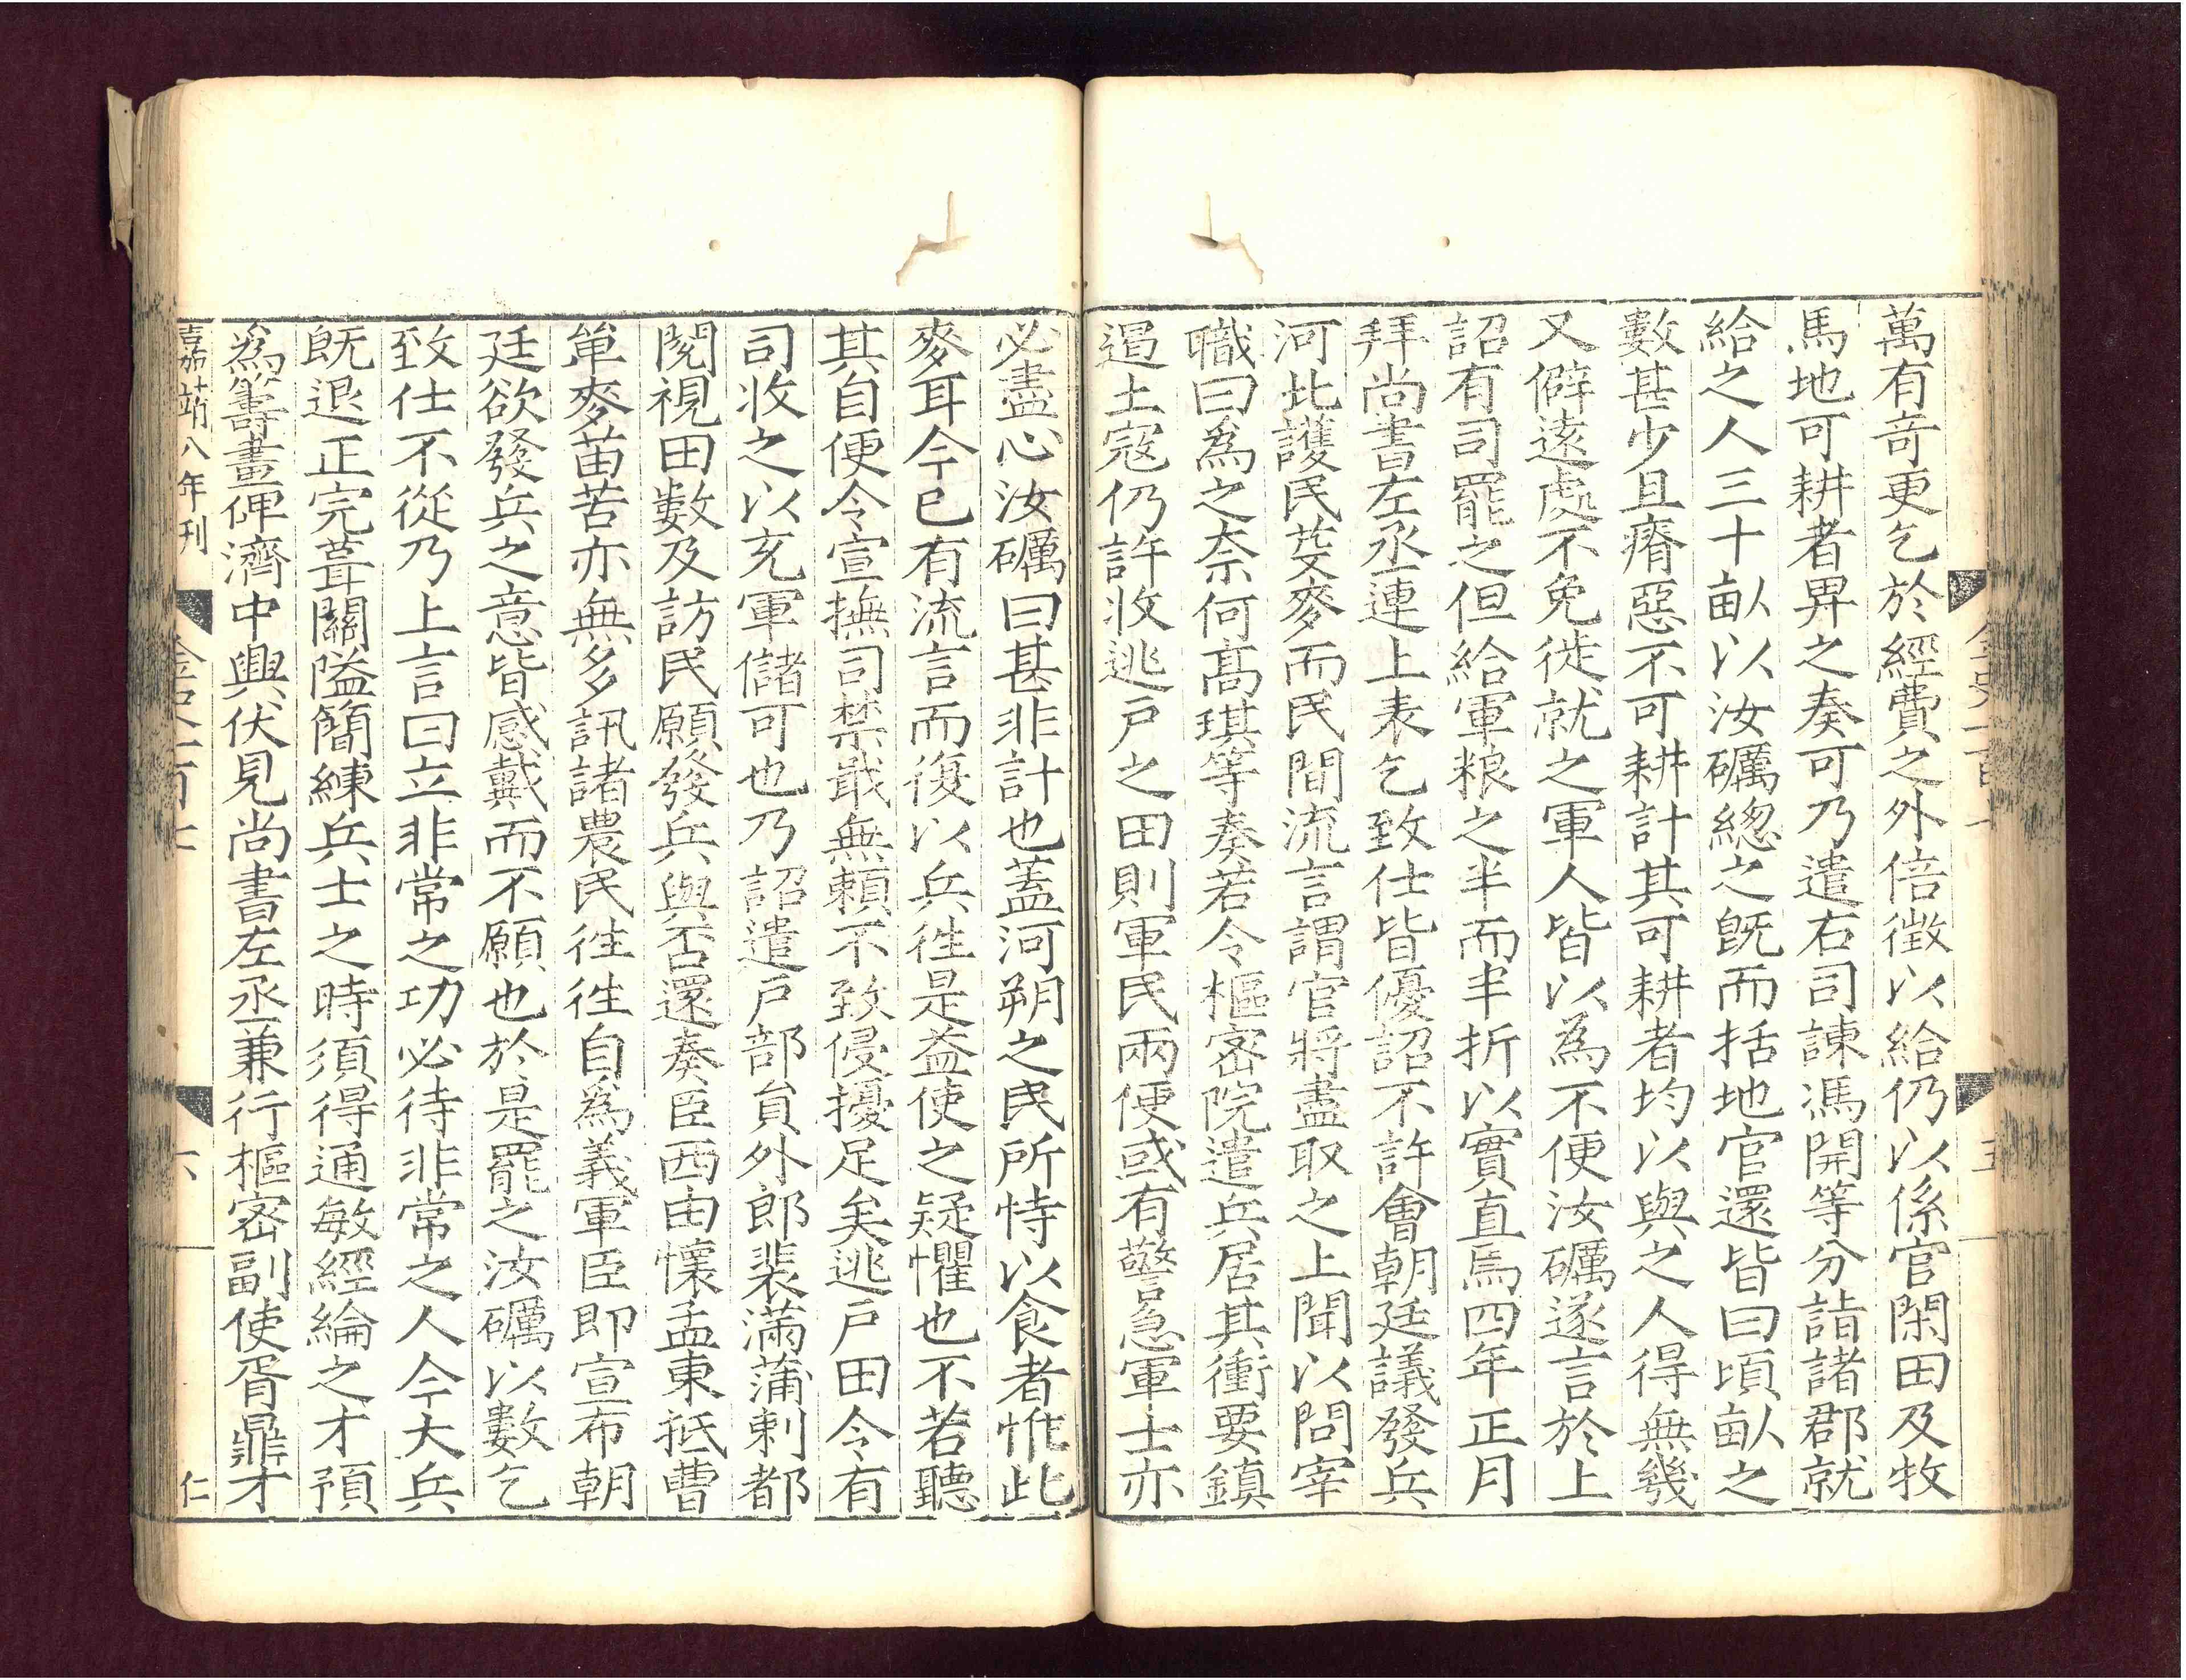 萬有竒更乞於經費之外倍徵以給仍以係官閑田及牧
馬地可耕者畀之奏可乃遣右司諫馮開等分詣諸郡就
給之人三十畝以汝礪緫之旣而括地官還皆曰頃畝之
數甚少且瘠惡不可耕計其可耕者均以與之人得無幾
又僻逺處不免徙就之軍人皆以為不便汝礪遂言於上
詔有司罷之但給軍粮之半而半折以實直焉四年正月
拜尚書左丞連上表乞致仕皆優詔不許會朝廷議發兵
河北護民芟麥而民間流言謂官將盡取之上聞以問宰
職曰爲之奈何髙琪等奏若令樞密院遣兵居其衝要鎮
遏土寇仍許收逃戸之田則軍民兩便或有警急軍士亦
必盡心汝礪曰甚非計也蓋河朔之民所恃以食者惟此
麥耳今已有流言而復以兵徃是益使之疑懼也不若聽
其自便令宣撫司禁戢無頼不致侵擾足矣逃戸田令有
司收之以充軍儲可也乃詔遣戸部貟外郎裴滿蒲剌都
閱視田數及訪民願發兵與否還奏臣西由懷孟東抵曹
單麥苗苦亦無多訊諸農民徃徃自爲義軍臣即宣布朝
廷欲發兵之意皆感戴而不願也於是罷之汝礪以數乞
致仕不從乃上言曰立非常之功必待非常之人今大兵
旣退正完葺關隘簡練兵士之時須得通敏經綸之才預
爲籌畫俾濟中興伏見尚書左丞兼行樞密副使胥鼎才
嘉靖八年刊
金史一百七
六
仁